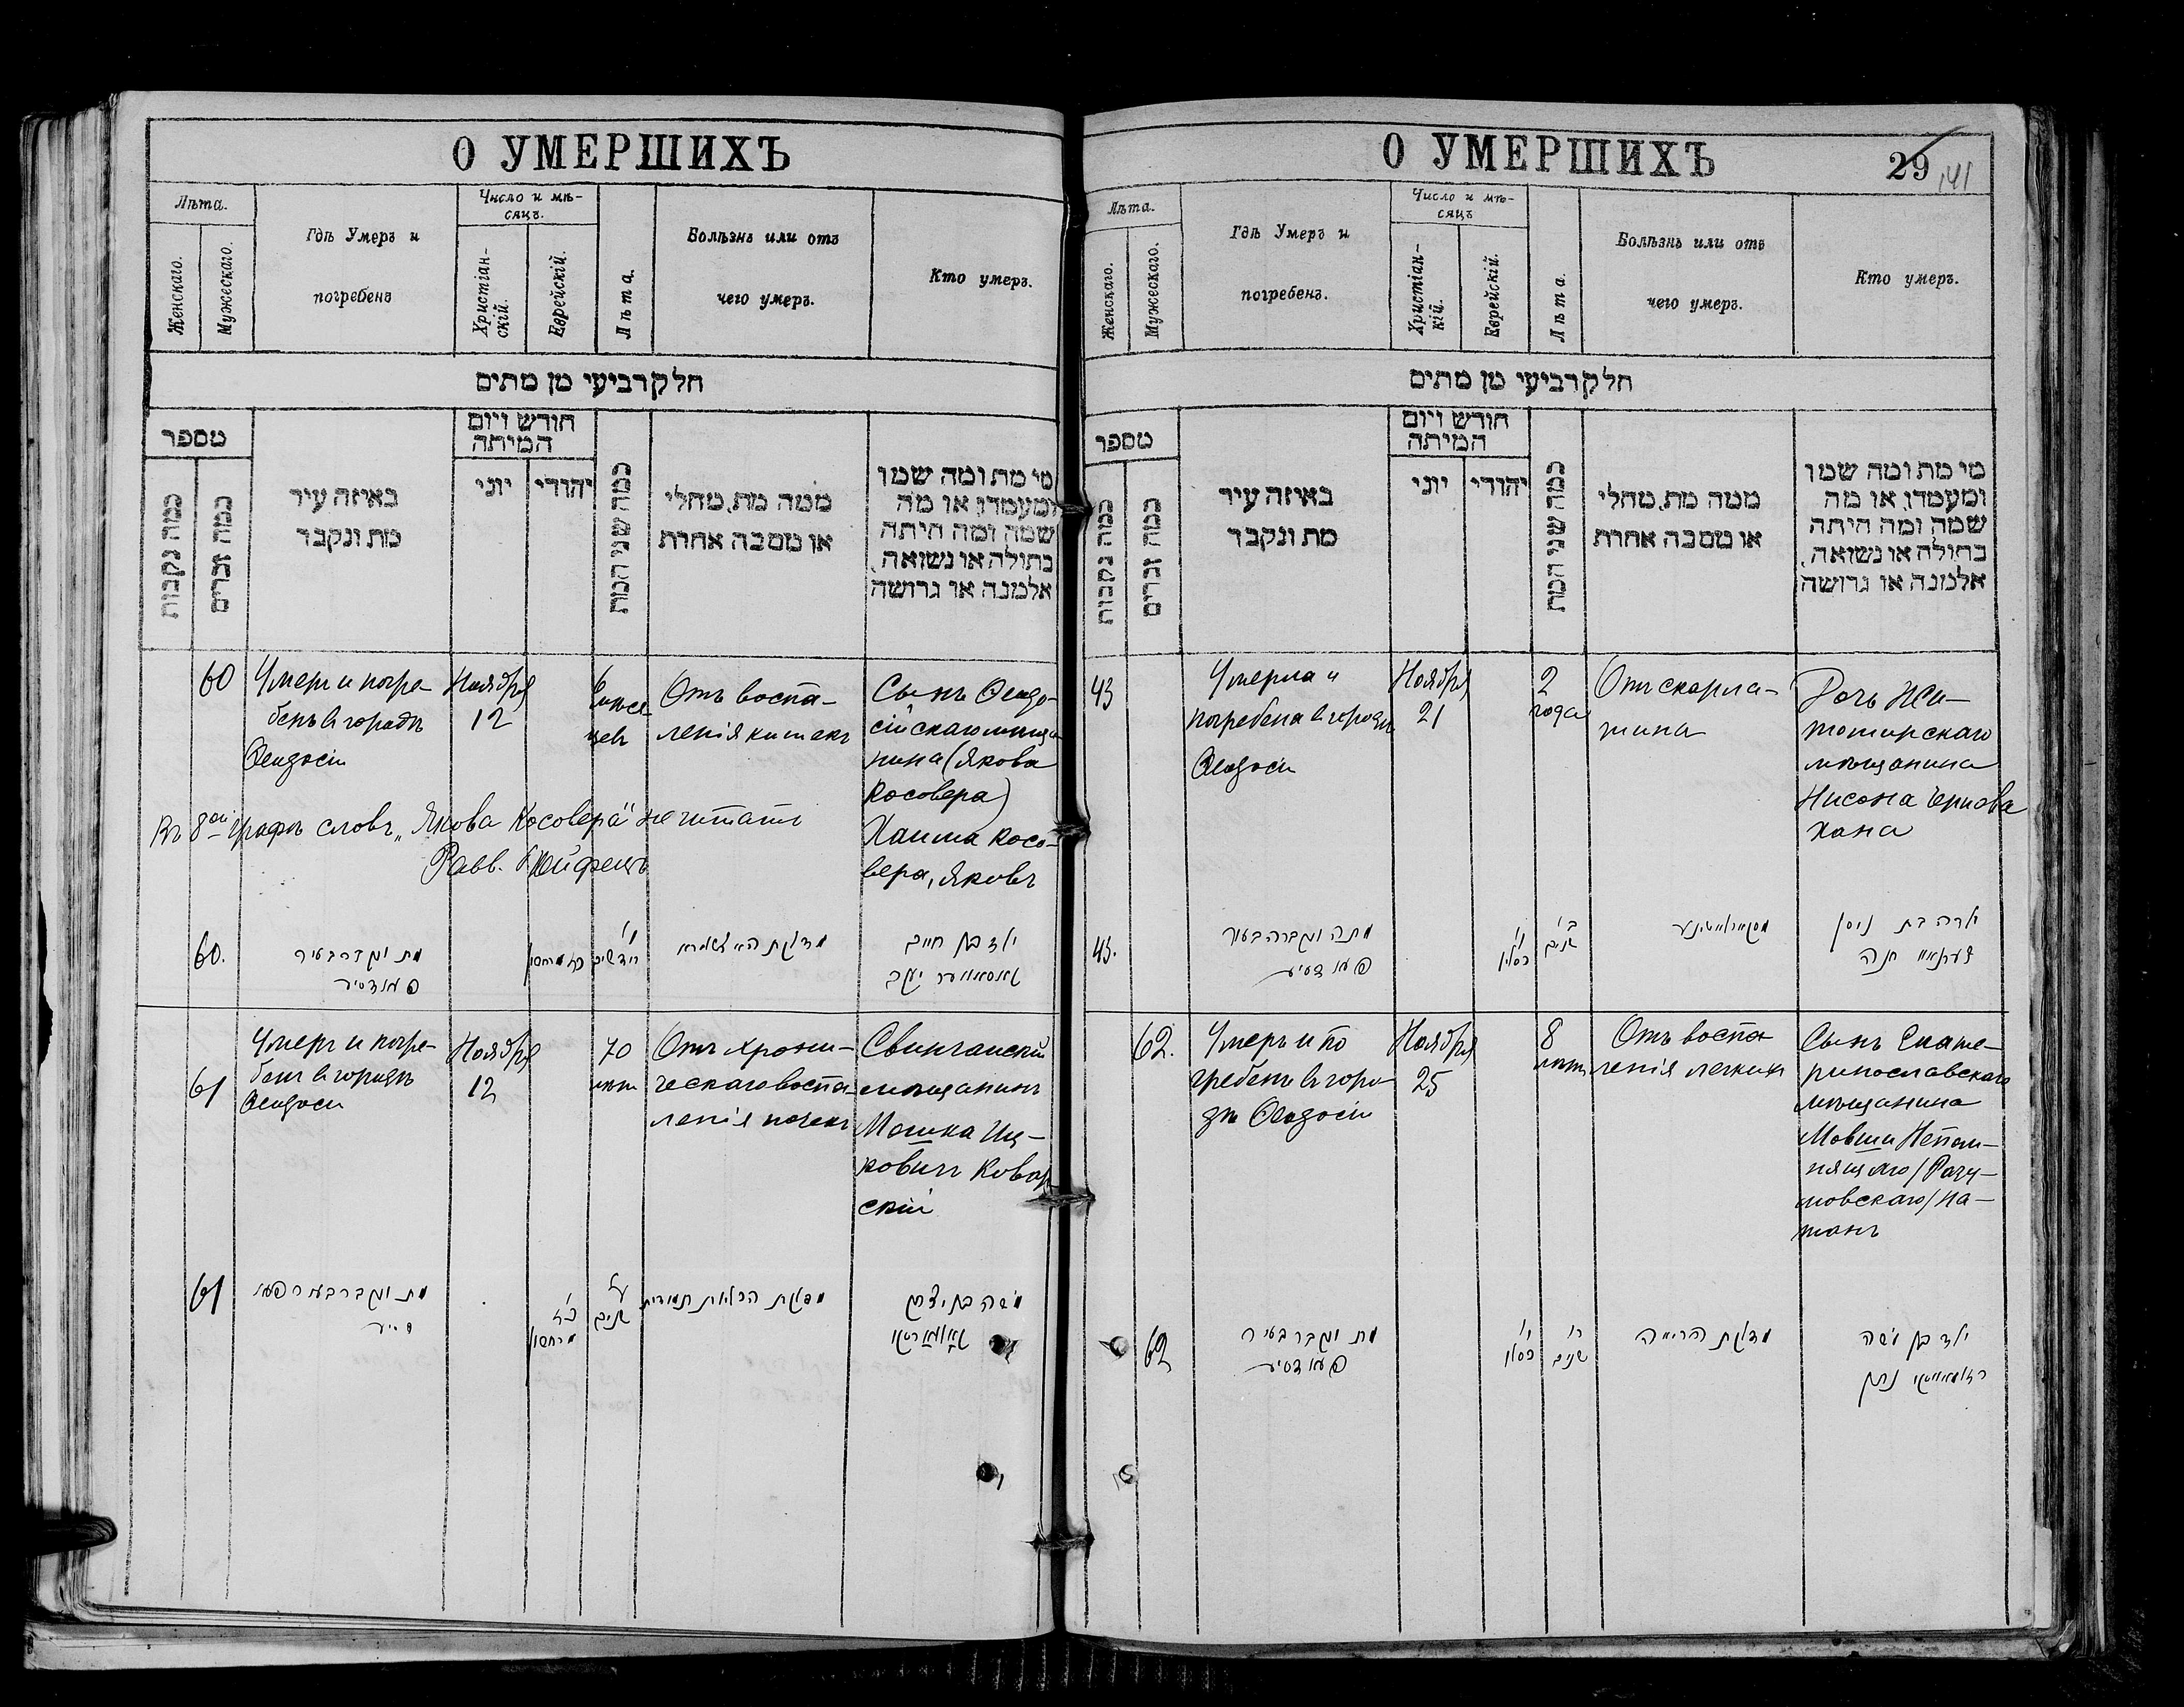 О УМЕРШИХЪ
Лѣта.
Женскаго.
Мужескаго.
Гдѣ Умеръ и
погребенъ
Число и мѣ-
сяцъ.
Христіан-
скій.
Еврейскій.
Лѣта.
Болѣзнь или отъ
чего умеръ.
Кто умеръ.
חלק רביעי מן מתים
מספר
כמה נקבות
כמה זכרים
באיזה עיר
מת ונקבר
חודש ויום
המיתה
יוני
יהודי
כמה שני המת
ממה מת, מחלי
או מסבה אחרת
מי מת ומה שמו
ומעמדו, או מה
שמה ומה היתה
בתולה או נשואה,
אלמנה או גרושה
60
Умеръ и погре-
бенъ въ городѣ
Ѳеодосіи
Ноября
12
6 мѣся-
цевъ
Отъ воспа-
ленія кишекъ
Сынъ Ѳеодо-
сійскаго мѣща-
нина (Якова
Косовера)
Хаима Косо-
вера, Яковъ
Въ 8ой графѣ словъ „Якова Косовера" не читать
Равв.
60.
מת ונקבר בעיר
פעאדסיע
ו'
חדשים
ילד בן חיים
קאסאווער יעקב
61
Умеръ и погре-
бенъ въ городѣ
Ѳеодосіи
Ноября
12
70
лѣтъ
Отъ хрони-
ческаго воспа-
ленія почекъ
Свинчанскій
мѣщанинъ
Мошка Иц-
ковичъ Ковар-
скій
61
מת ונקבר בעיר פעא
דסיע
מרחשון
ע'
שנים
משה בן יצחק
קאווארסקי
О УМЕРШИХЪ
29
141
Лѣта.
Женскаго.
Мужескаго.
Гдѣ Умеръ и
погребенъ.
Число и мѣ-
сяцъ
Христіан-
кій.
Еврейскій.
Лѣта.
Болѣзнь или отъ
чего умеръ.
Кто умеръ.
חלק רביעי מן מתים
מספר
כמה נקבות
כמה זכרים
באיזה עיר
מת ונקבר
חודש ויום
המיתה
יוני
יהודי
כמה שני המת
ממה מת, מחלי
או מסבה אחרת
מי מת ומה שמו
ומעמדו, או מה
שמה ומה היתה
בתולה או נשואה,
אלמנה או גרושה
43
Умерла и
погребена въ городѣ
Ѳеодосіи
Ноября
21
2
года
Отъ скарла-
тина
Дочь Жи-
томирскаго
мѣщанина
Нисона Чернова
Хана
43.
מתה ונקברה בעיר
פעאדסיע
כסלו
ב'
שנים
ילדה בת ניסן
חנה
62.
Умеръ и по
гребенъ въ горо-
дѣ Ѳеодосіи
Ноября
25
8
лѣтъ
Отъ воспа
ленія легкихъ
Сынъ Екате-
ринославскаго
мѣщанина
Мовши Непом-
нящаго/Разу-
мовскаго/На-
танъ
62
מת ונקבר בעיר
פעאדסיע
כסלו
ח'
שנים
מדלקת הריאה
ילד בן משה
נתן